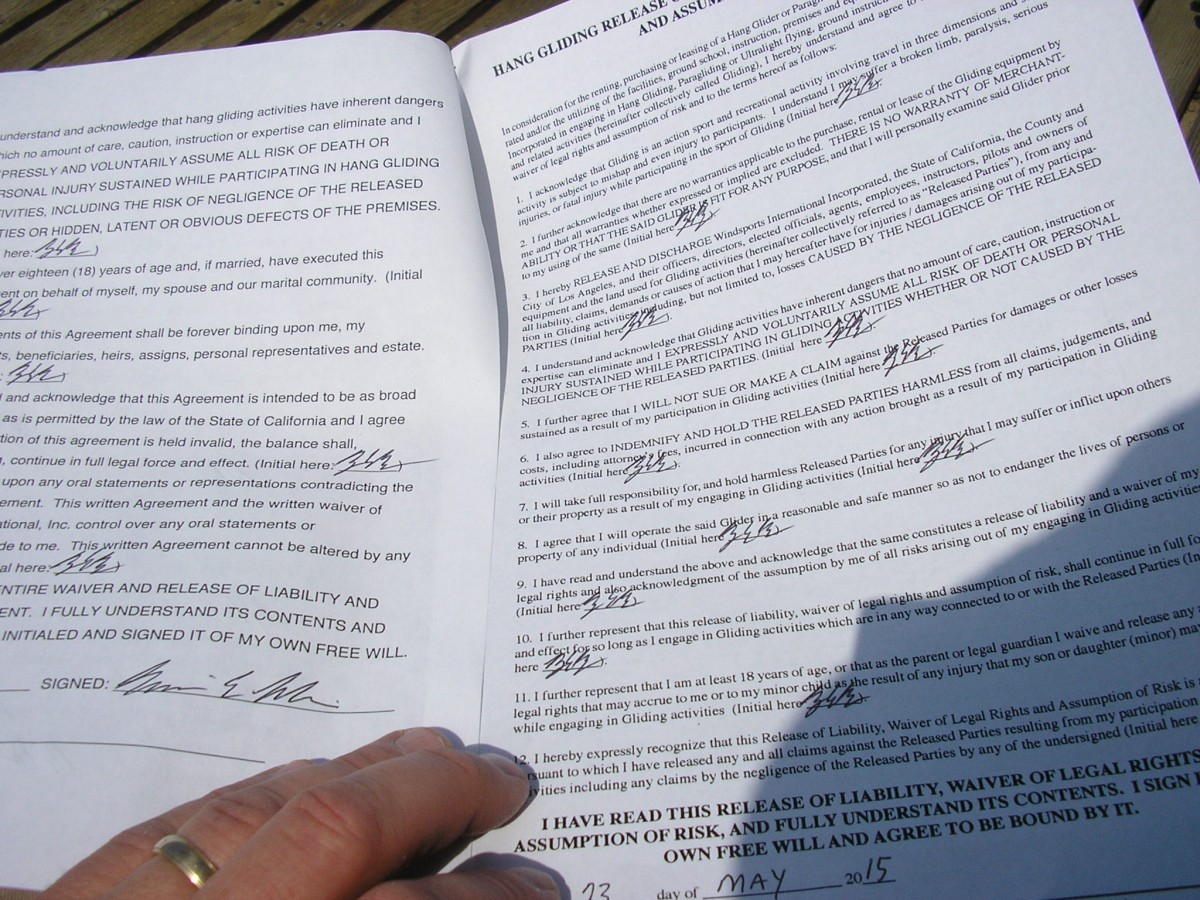 understand and acknowledge that hang gliding activities have inherent dangers
which no amount of care, caution, instruction or expertise can eliminate and I
PRESSLY AND VOLUNTARILY ASSUME ALL RISK OF DEATH OR
RSONAL INJURY SUSTAINED WHILE PARTICIPATING IN HANG GLIDING
TIVITIES, INCLUDING THE RISK OF NEGLIGENCE OF THE RELEASED
TIES OR HIDDEN, LATENT OR OBVIOUS DEFECTS OF THE PREMISES.
here: )
ver eighteen (18) years of age and, if married, have executed this
ent on behalf of myself, my spouse and our marital community. (Initial
ents of this Agreement shall be forever binding upon me, my
s, beneficiaries, heirs, assigns, personal representatives and estate.
:
and acknowledge that this Agreement is intended to be as broad
as is permitted by the law of the State of California and I agree
tion of this agreement is held invalid, the balance shall,
, continue in full legal force and effect. (Initial here: )
upon any oral statements or representations contradicting the
ement. This written Agreement and the written waiver of
ational, Inc. control over any oral statements or
de to me. This written Agreement cannot be altered by any
al here:
ENTIRE WAIVER AND RELEASE OF LIABILITY AND
ENT. I FULLY UNDERSTAND ITS CONTENTS AND
INITIALED AND SIGNED IT OF MY OWN FREE WILL.
SIGNED:
HANG GLIDING RELEASE
AND ASSUM
In consideration for the renting, purchasing or leasing of a Hang Glider or Parag
rated and/or the utilizing of the facilities, ground school, instruction, premises and eq
Incorporated in engaging in Hang Gliding, Paragliding or Ultralight flying, ground instruct
and related activities (hereinafter collectively called Gliding), I hereby understand and agree to
waiver of legal rights and assumption of risk and to the terms hereof as follows:
1. I acknowledge that Gliding is an action sport and recreational activity involving travel in three dimensions and
activity is subject to mishap and even injury to participants. I understand I may suffer a broken limb, paralysis, serious
injuries, or fatal injury while participating in the sport of Gliding (Initial here ).
2. I further acknowledge that there are no warranties applicable to the purchase, rental or lease of the Gliding equipment by
me and that all warranties whether expressed or implied are excluded. THERE IS NO WARRANTY OF MERCHANT-
ABILITY OR THAT THE SAID GLIDER IS FIT FOR ANY PURPOSE, and that I will personally examine said Glider prior
to my using of the same (Initial here ).
3. I hereby RELEASE AND DISCHARGE Windsports International Incorporated, the State of California, the County and
City of Los Angeles, and their officers, directors, elected officials, agents, employees, instructors, pilots and owners of
equipment and the land used for Gliding activities (hereinafter collectively referred to as "Released Parties"), from any and
all liability, claims, demands or causes of action that I may hereafter have for injuries / damages arising out of my participa-
tion in Gliding activities including, but not limited to, losses CAUSED BY THE NEGLIGENCE OF THE RELEASED
PARTIES (Initial here ).
4. I understand and acknowledge that Gliding activities have inherent dangers that no amount of care, caution, instruction or
expertise can eliminate and I EXPRESSLY AND VOLUNTARILY ASSUME ALL RISK OF DEATH OR PERSONAL
INJURY SUSTAINED WHILE PARTICIPATING IN GLIDING ACTIVITIES WHETHER OR NOT CAUSED BY THE
NEGLIGENCE OF THE RELEASED PARTIES. (Initial here ).
5. I further agree that I WILL NOT SUE OR MAKE A CLAIM against the Released Parties for damages or other losses
sustained as a result of my participation in Gliding activities (Initial here ).
6. I also agree to INDEMNIFY AND HOLD THE RELEASED PARTIES HARMLESS from all claims, judgements, and
costs, including attorney's fees, incurred in connection with any action brought as a result of my participation in Gliding
activities (Initial here ).
7. I will take full responsibility for, and hold harmless Released Parties for any injury that I may suffer or inflict upon others
or their property as a result of my engaging in Gliding activities (Initial here ).
8. I agree that I will operate the said Glider in a reasonable and safe manner so as not to endanger the lives of persons or
property of any individual (Initial here ).
9. I have read and understand the above and acknowledge that the same constitutes a release of liability and a waiver of my
legal rights and also acknowledgment of the assumption by me of all risks arising out of my engaging in Gliding activities
(Initial here ).
10. I further represent that this release of liability, waiver of legal rights and assumption of risk, shall continue in full fo
and effect for so long as I engage in Gliding activities which are in any way connected to or with the Released Parties (In
here ).
11. I further represent that I am at least 18 years of age, or that as the parent or legal guardian I waive and release any
legal rights that may accrue to me or to my minor child as the result of any injury that my son or daughter (minor) may
while engaging in Gliding activities (Initial here ).
12. I hereby expressly recognize that this Release of Liability, Waiver of Legal Rights and Assumption of Risk is
rsuant to which I have released any and all claims against the Released Parties resulting from my participation
ivities including any claims by the negligence of the Released Parties by any of the undersigned (Initial here
I HAVE READ THIS RELEASE OF LIABILITY, WAIVER OF LEGAL RIGHTS
ASSUMPTION OF RISK, AND FULLY UNDERSTAND ITS CONTENTS. I SIGN
OWN FREE WILL AND AGREE TO BE BOUND BY IT.
23 day of MAY 2015